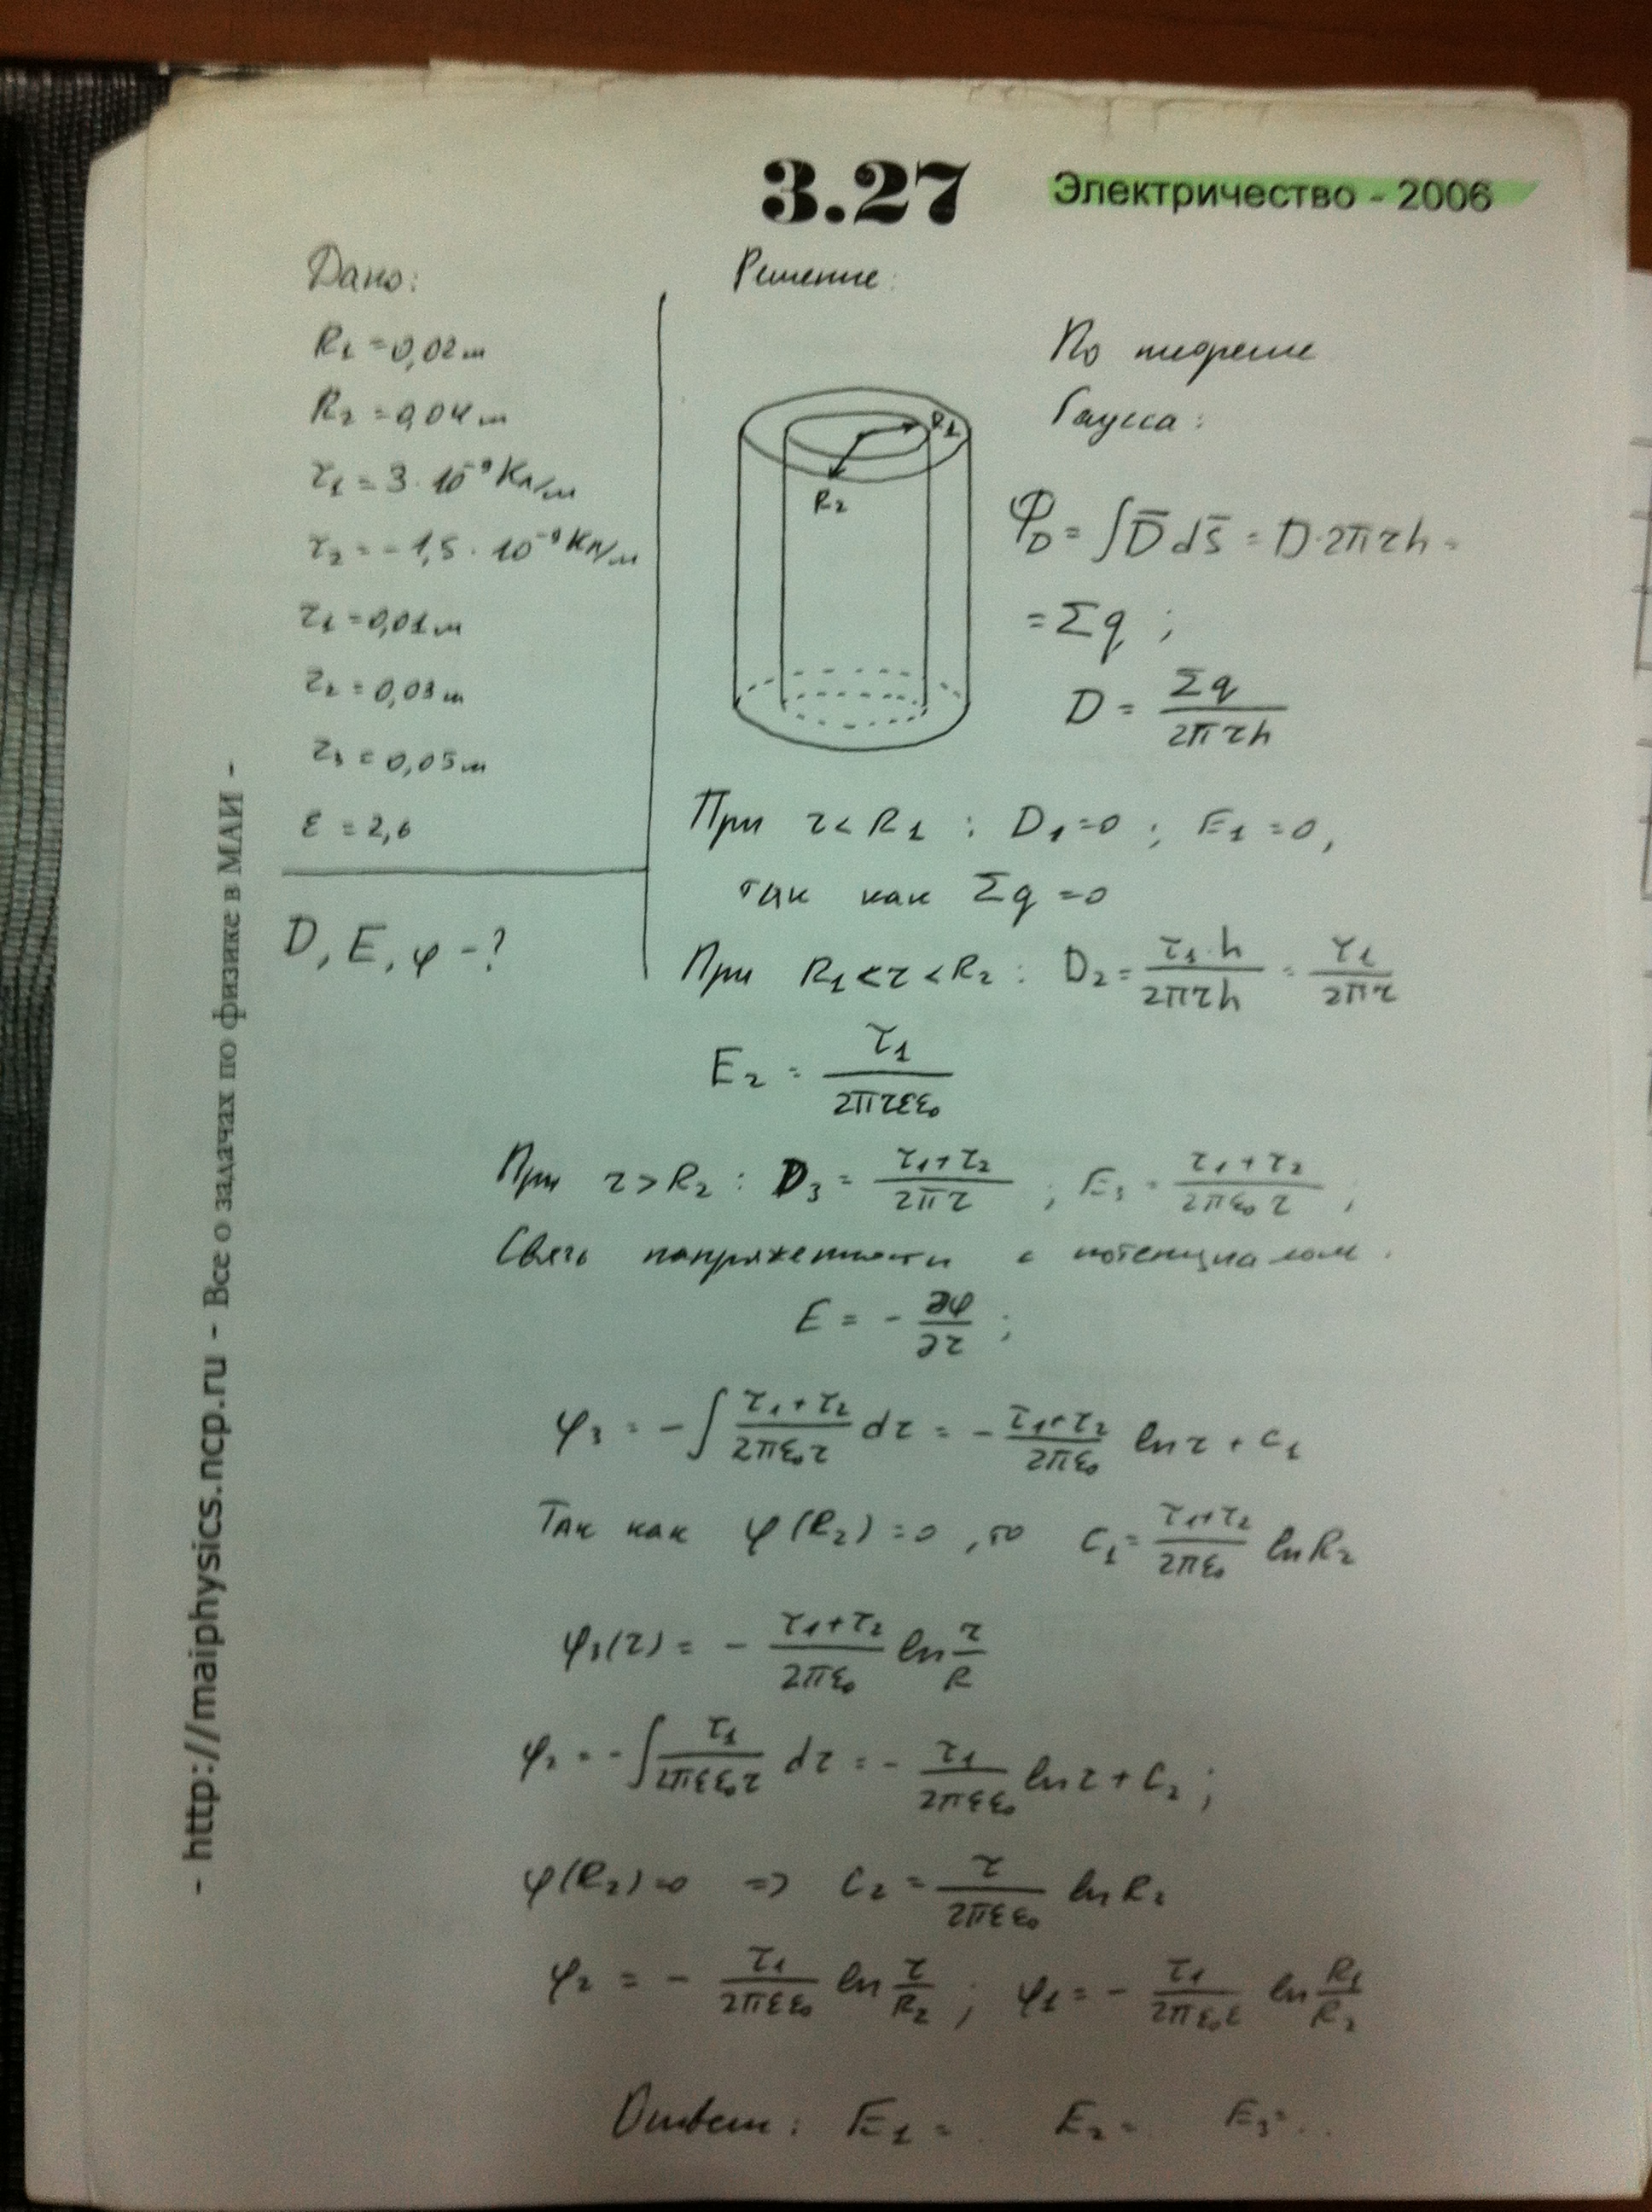 3.27
Электричество - 2006
Дано:
R₁ = 0,02 м
R₂ = 0,04 м
τ₁ = 3 · 10⁻⁹ Кл/м
τ₂ = -1,5 · 10⁻⁹ Кл/м
r₁ = 0,01 м
r₂ = 0,03 м
r₃ = 0,05 м
ε = 2,6
D, E, φ - ?
Решение:
R₁
R₂
По теореме
Гаусса:
Φ_D = ∫D̄ dS̄ = D·2πrh =
= Σq ;
D = Σq / 2πrh
При r < R₁ : D₁ = 0 ; E₁ = 0,
так как Σq = 0
При R₁ < r < R₂ : D₂ = τ₁·h / 2πrh = τ₁ / 2πr
E₂ = τ₁ / 2πrεε₀
При r > R₂ : D₃ = τ₁+τ₂ / 2πr ; E₃ = τ₁+τ₂ / 2πε₀r ;
Связь напряженности с потенциалом.
E = - ∂φ / ∂r ;
φ₃ = - ∫ τ₁+τ₂ / 2πε₀r dr = - τ₁+τ₂ / 2πε₀ ln r + C₁
Так как φ(R₂) = 0 , то C₁ = τ₁+τ₂ / 2πε₀ ln R₂
φ₃(r) = - τ₁+τ₂ / 2πε₀ ln r / R
φ₂ = - ∫ τ₁ / 2πεε₀r dr = - τ₁ / 2πεε₀ ln r + C₂ ;
φ(R₂) = 0 => C₂ = τ / 2πεε₀ ln R₂
φ₂ = - τ₁ / 2πεε₀ ln r / R₂ ; φ₁ = - τ₁ / 2πε₀ε ln R₁ / R₂
Ответ: E₁ = . E₂ = . E₃ = ..
- http://maiphysics.ncp.ru - Все о задачах по физике в МАИ -